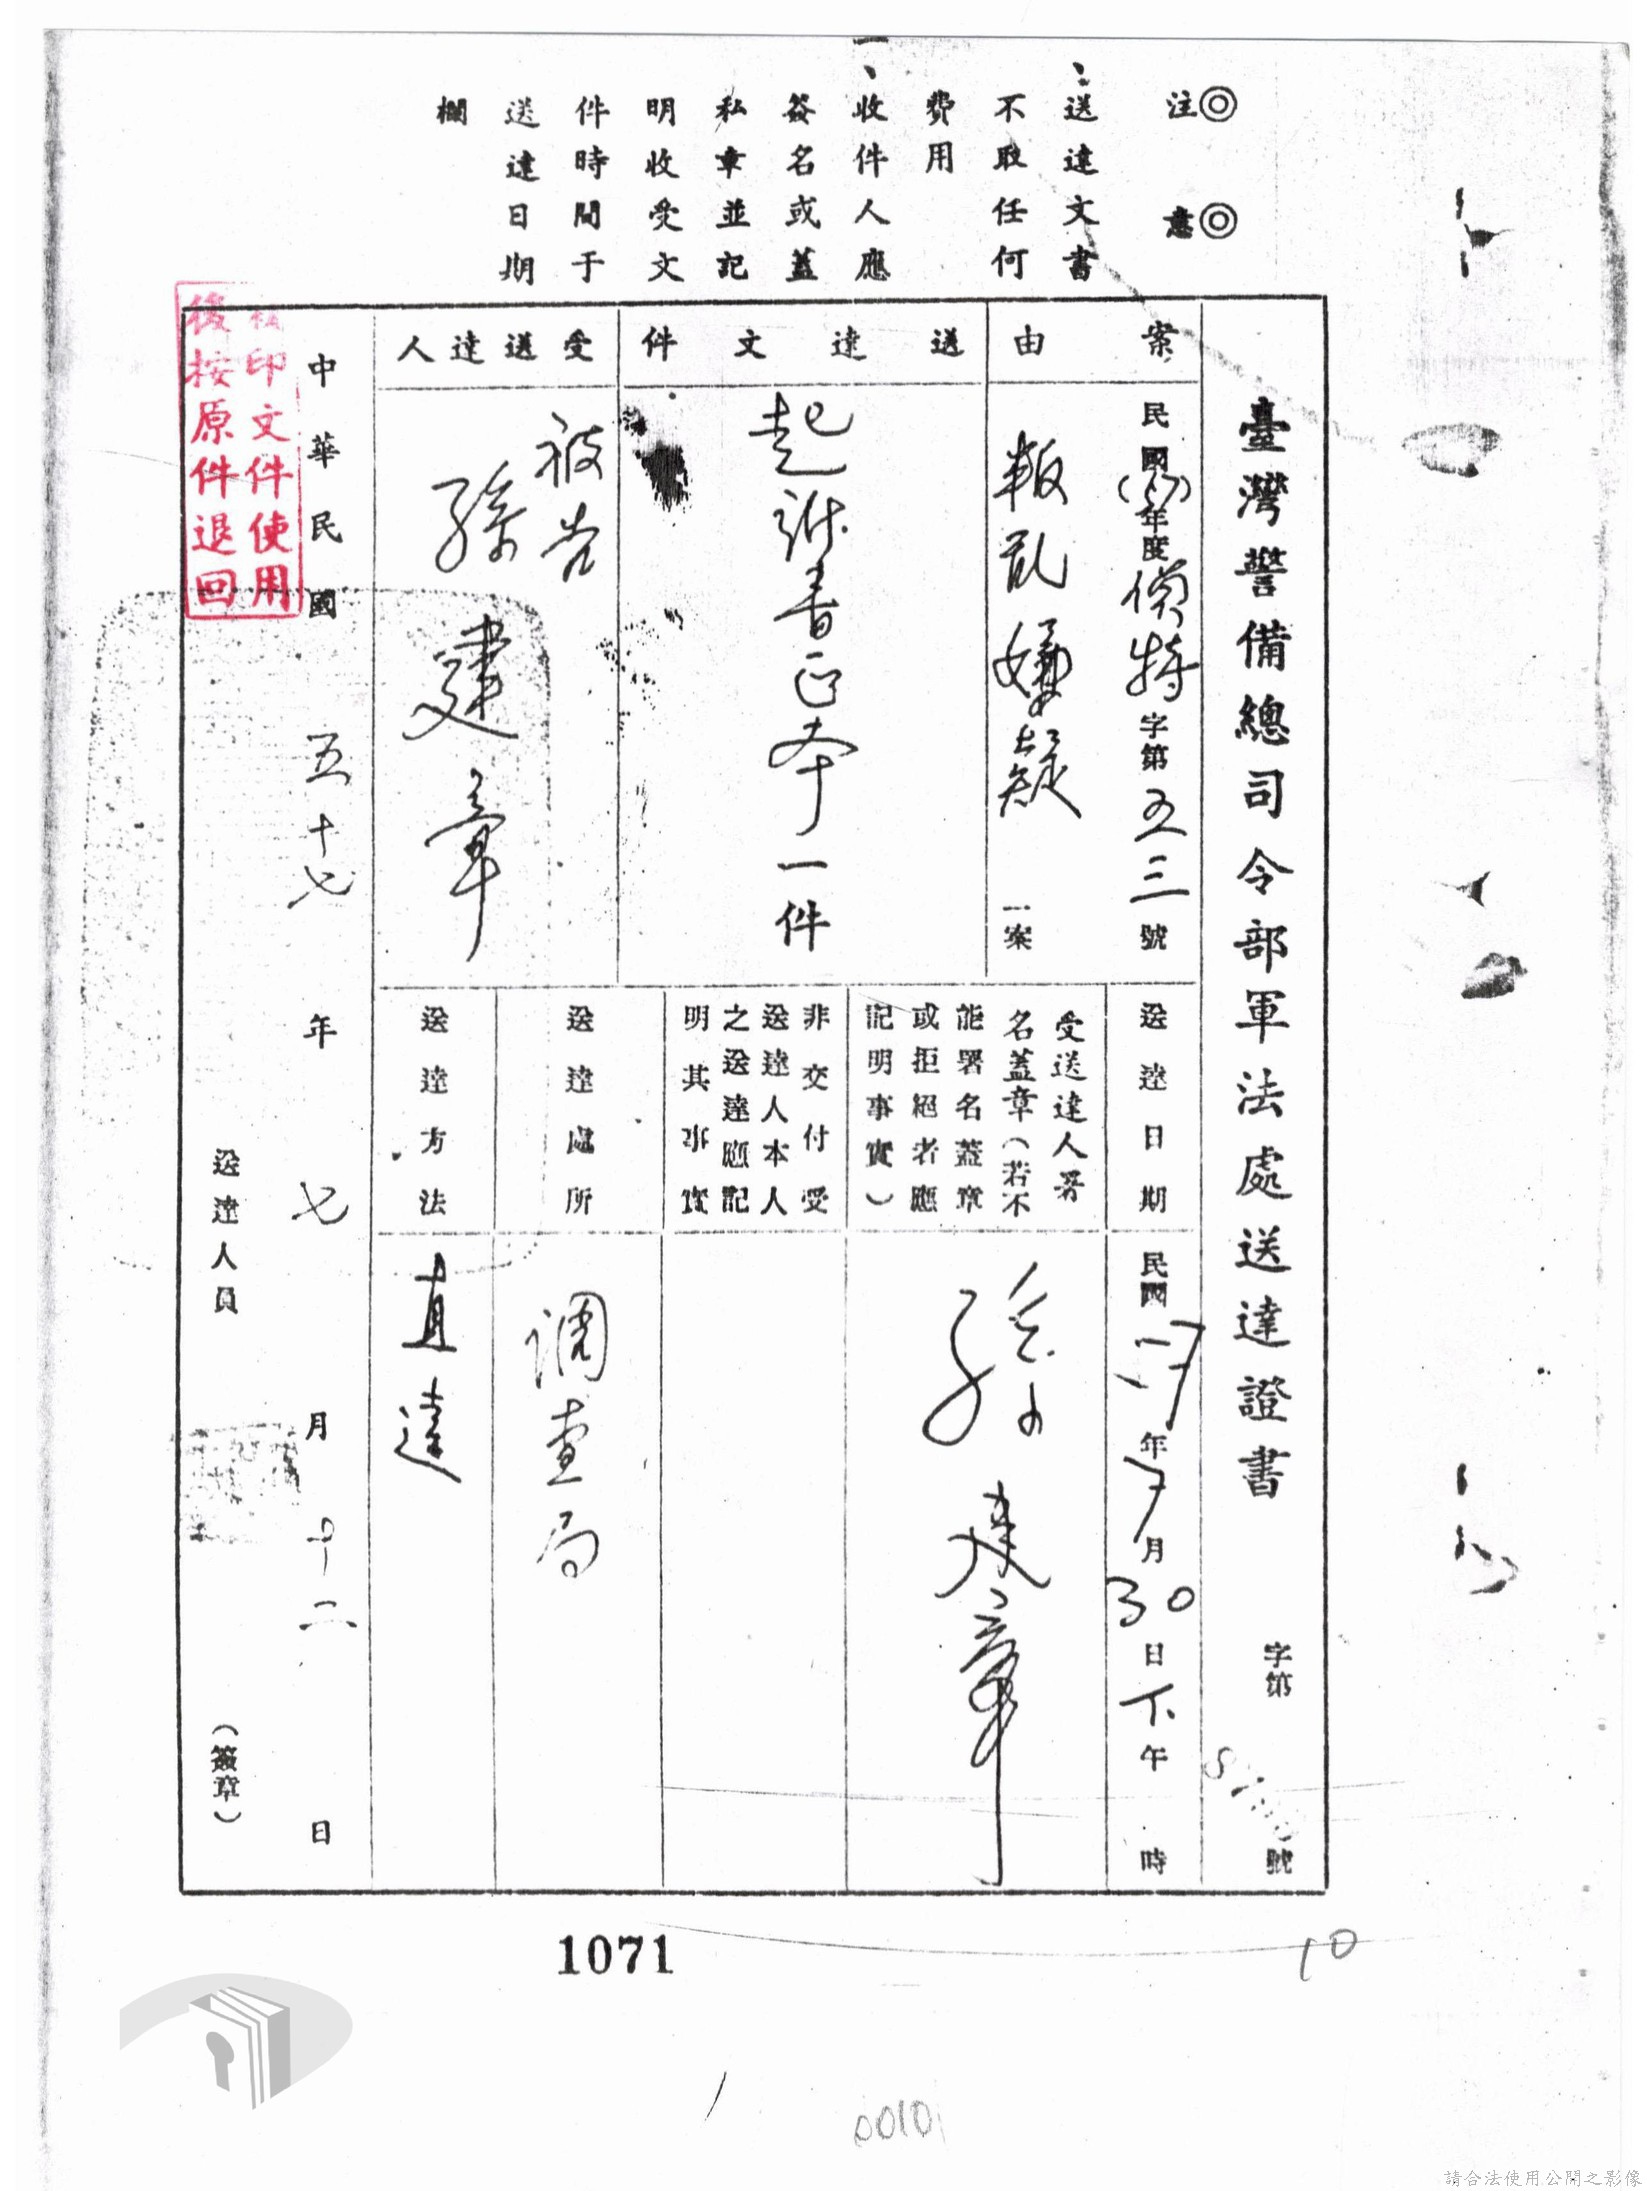 注意
一、送達文書
不取任何
費用
二、收件人應
簽名或蓋
私章並記
明收受文
件時間于
送達日期
欄
臺灣警備總司令部軍法處送達證書 字第 號
案由
民國(57)年度偵特字第五三號
叛亂嫌疑 一案
送達文件
起訴書正本一件
受送達人
被告
孫建章
送達日期
民國 57年7月30日下午 時
受送達人署
名蓋章(若不
能署名蓋章
或拒絕者應
記明事實)
孫建章
非交付受
送達人本人
之送達應記
明其事實
送達處所
调查局
送達方法
直達
中華民國五十七年七月十二日
送達人員 (簽章)
印文件使用
後按原件退回
1071
10
0010
請合法使用公開之影像